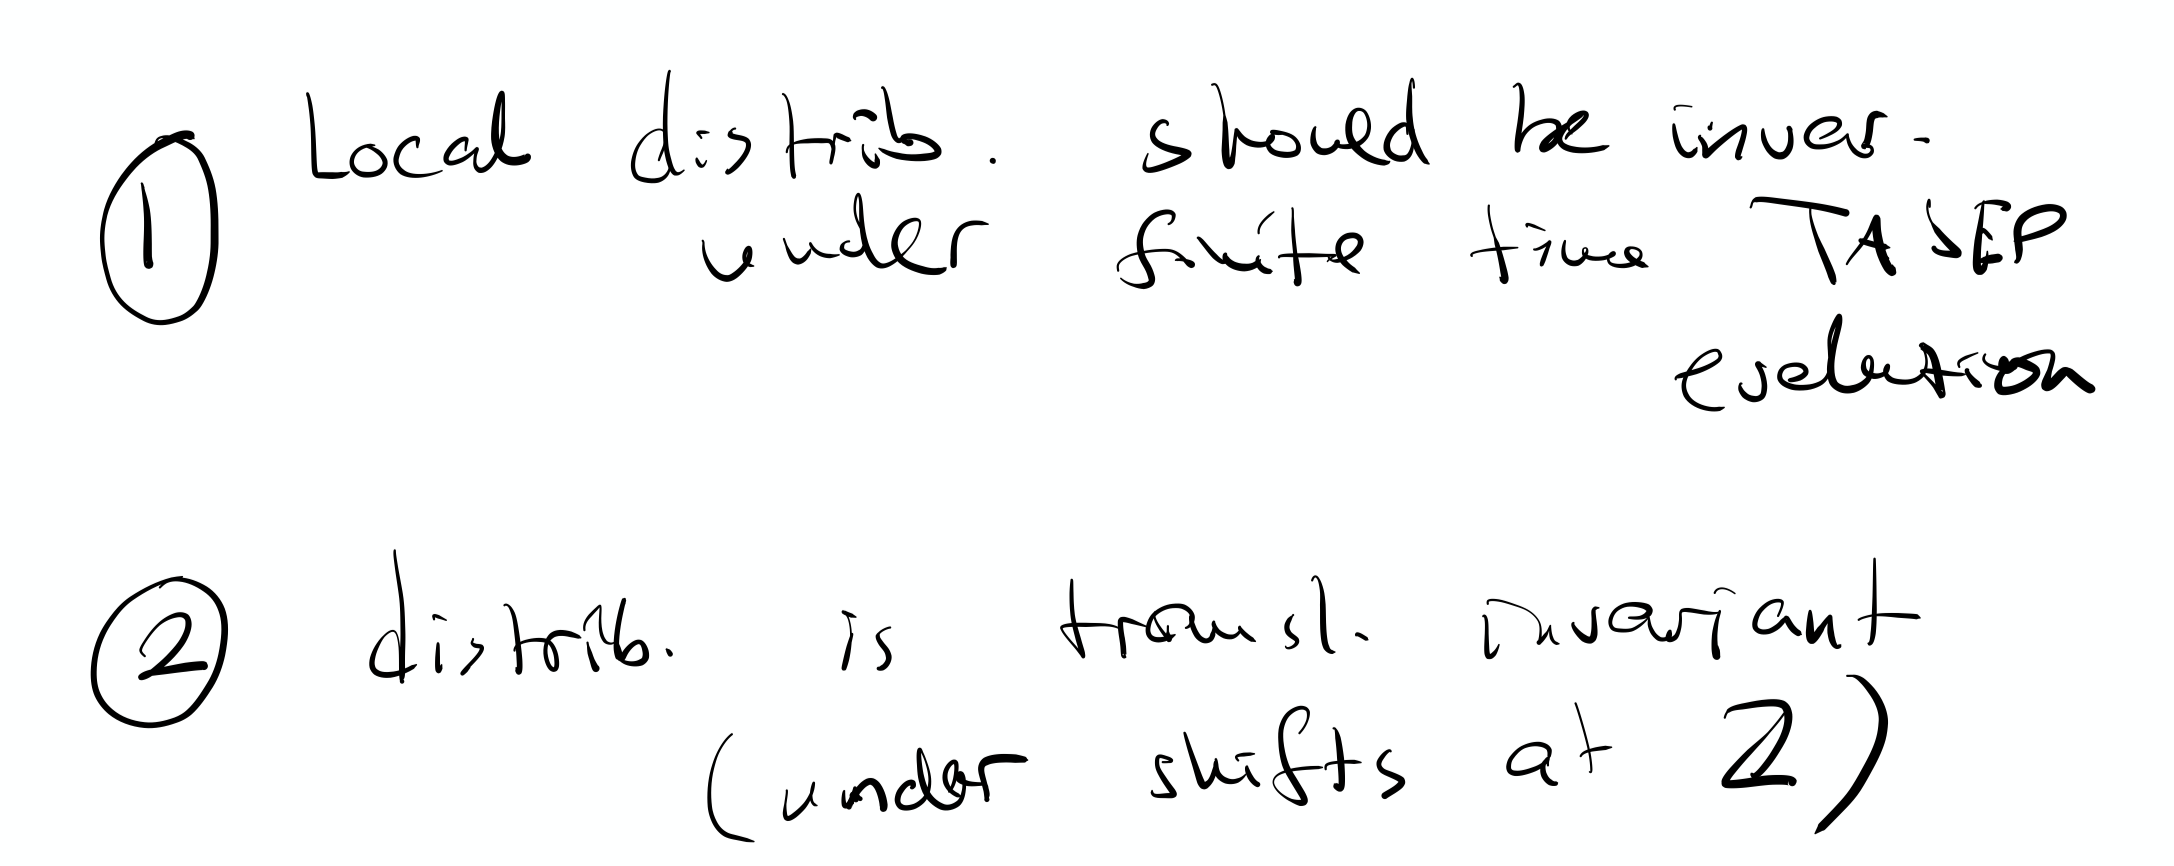 ① Local distrib. should be invar.
under finite time TASEP
evolution
② distrib. is transl. invariant
(under shifts at ℤ)